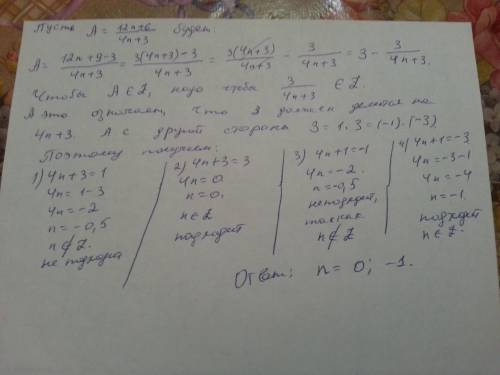 Пусть A = (12n+6)/(4n+3) будем:
A = (12n+9-3)/(4n+3) = (3(4n+3)-3)/(4n+3) = (3(4n+3))/(4n+3) - 3/(4n+3) = 3 - 3/(4n+3).
Чтобы A ∈ Z, надо чтобы 3/(4n+3) ∈ Z.
А это означает, что 3 должен делится на
4n+3. А с другой стороны 3 = 1·3 = (-1)·(-3)
Поэтому получаем:
1) 4n+3=1
4n=1-3
4n=-2
n=-0,5
n∉Z.
не подходит
2) 4n+3=3
4n=0
n=0.
n∈Z
подходит
3) 4n+1=-1
4n=-2.
n=-0,5
не подходит,
так как
n∉Z
4) 4n+1=-3
4n=-3-1
4n=-4
n=-1.
подходит
n∈Z.
Ответ: n = 0; -1.